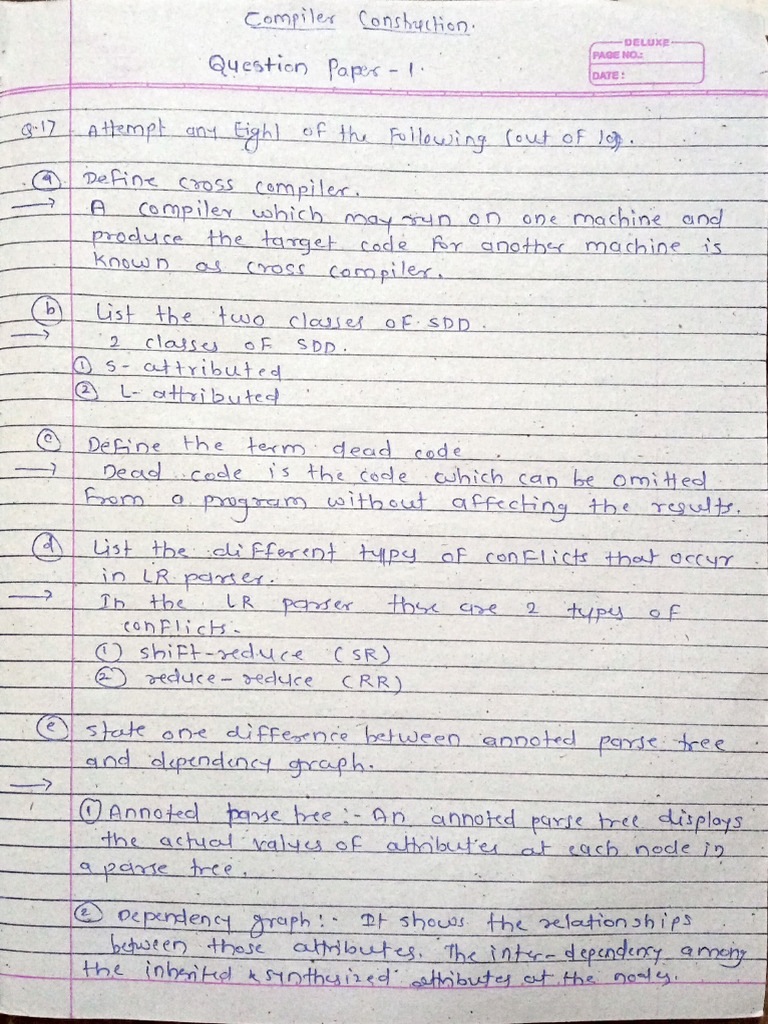 Compiler Constuction.
Question Paper - 1.
DELUXE
PAGE NO.:
DATE:
Q.17 Attempt any Eight of the Following (out of 10).
(a) Define cross compiler.
→ A compiler which may run on one machine and
produce the target code for another machine is
known as cross compiler.
(b) List the two classes of SDD.
→ 2 classes of SDD.
(1) S- attributed
(2) L- attributed
(c) Define the term dead code.
→ Dead code is the code which can be omitted
from a program without affecting the results.
(d) List the different types of conflicts that occur
in LR parser.
→ In the LR parser these are 2 types of
conflicts.
(1) shift-reduce (SR)
(2) reduce-reduce (RR)
(e) State one difference between annoted parse tree
and dependency graph.
→
(1) Annoted parse tree :- An annoted parse tree displays
the actual values of attributes at each node in
a parse tree.
(2) Dependency graph :- It shows the relationships
between those attributes. The inter-dependency among
the inherited & synthesized attributes at the nodes.